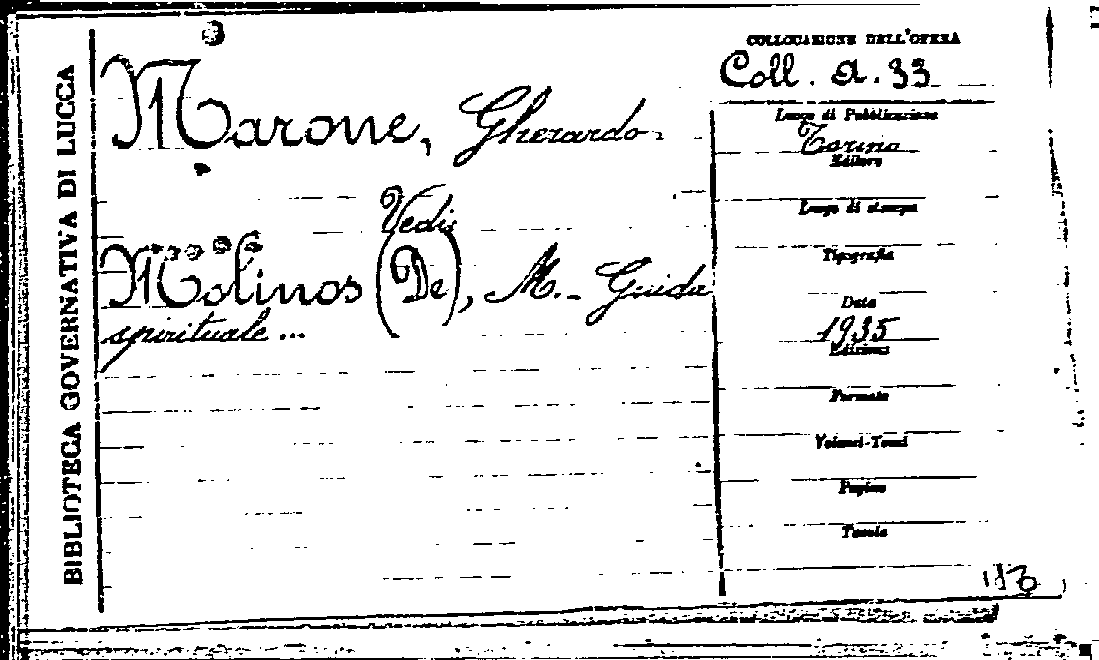 BIBLIOTECA GOVERNATIVA DI LUCCA
Marone, Gherardo.
Vedi
Molinos (De), M. - Guida
spirituale ...
COLLOCAZIONE DELL'OPERA
Coll. A. 33
Luogo di Pubblicazione
Torino
Editore
Luogo di stampa
Tipografia
Data
1935
Edizione
Formato
Volumi-Tomi
Pagine
Tavole